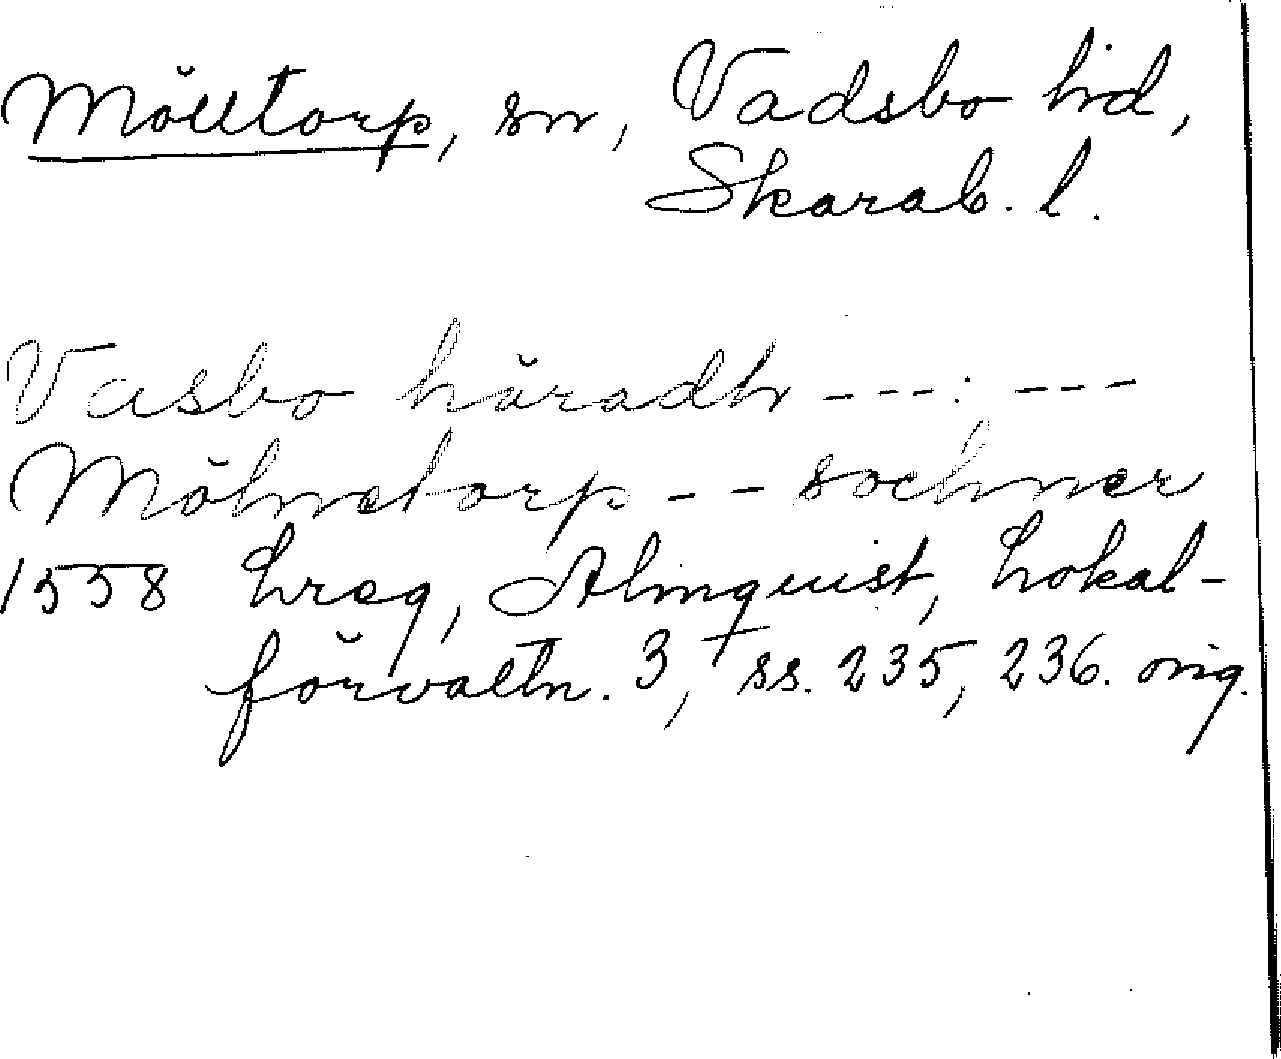 Mölltorp, sn, Vadsbo hd,
Skarab. l.
Vasbo häradh ---: ---
Mölnetorp -- sochner
1558 Lreg, Almquist, Lokal-
förvaltn. 3, ss. 235, 236. orig.